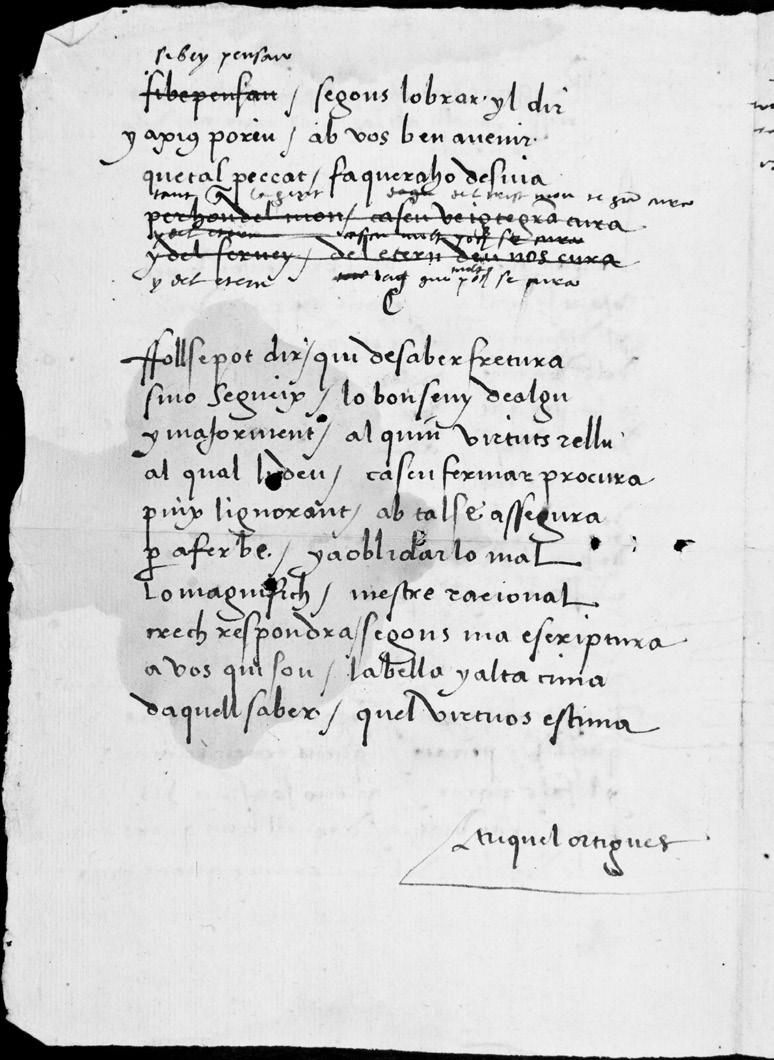 se bey pensau
si be pensau / segons lobrar yl dir
y axi9 poreu / ab vos ben avenir
quetal peccat / faqueraho desuia
tant del trist mon se cura
per hon del mon / cascu ve integra cura
y del etern cascu molt poch se cura
y del servey / del etern deu nos cura
y del etern molt poch se cura
C
ffoll se pot dir / qui desaber fretura
sino segueix / lo bon seny dealgu
y maiorment / al quin virtuts rellu
al qual lo deu / cascu fermar procura
puix lignorant / ab tal se assegura
p afer be / ya oblidar lo mal
Lo magnifich / mestre racional
crech respondra / segons ma escriptura
a vos qui sou / la bella y alta cima
daquell saber / quel virtuos estima
Miquel ortigues